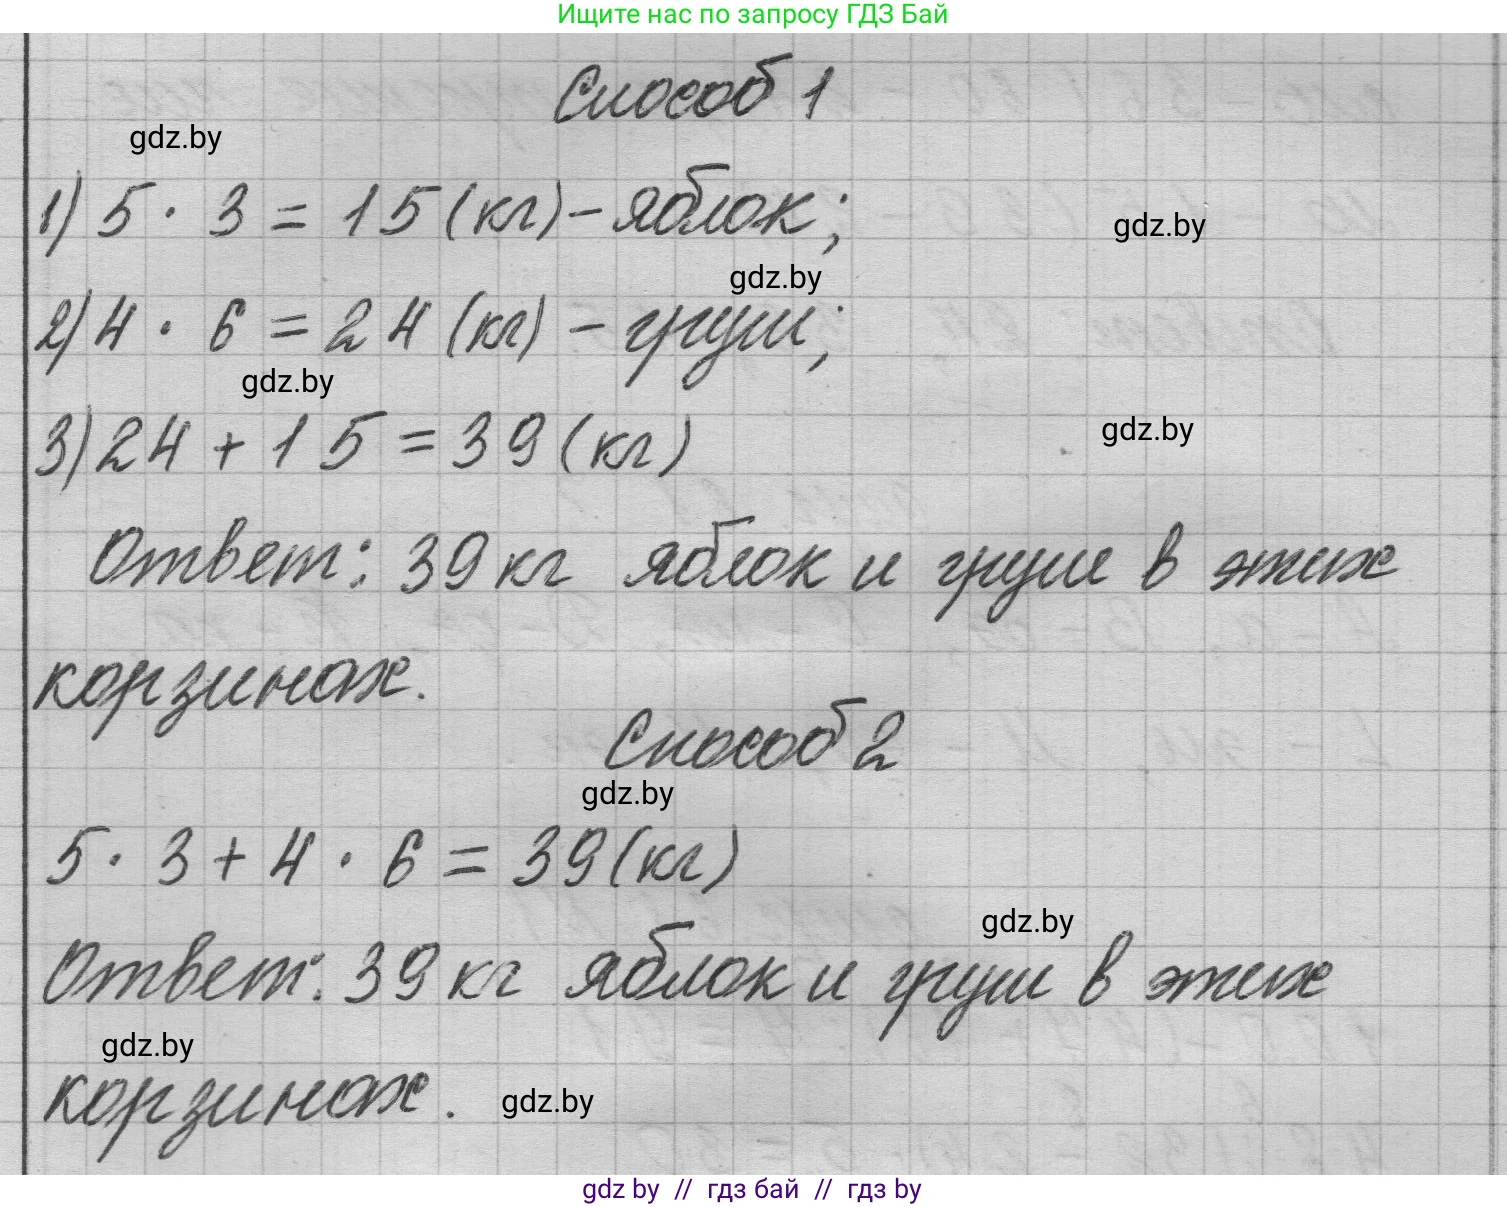 Ищите нас по запросу ГДЗ Бай
Способ 1
gdz.by
1) 5 · 3 = 15 (кг) – яблок;
gdz.by
gdz.by
2) 4 · 6 = 24 (кг) – груш;
gdz.by
3) 24 + 15 = 39 (кг)
gdz.by
Ответ: 39 кг яблок и груш в этих
корзинах.
Способ 2
gdz.by
5 · 3 + 4 · 6 = 39 (кг)
gdz.by
Ответ: 39 кг яблок и груш в этих
gdz.by
корзинах.
gdz.by
gdz by // гдз бай // гдз by